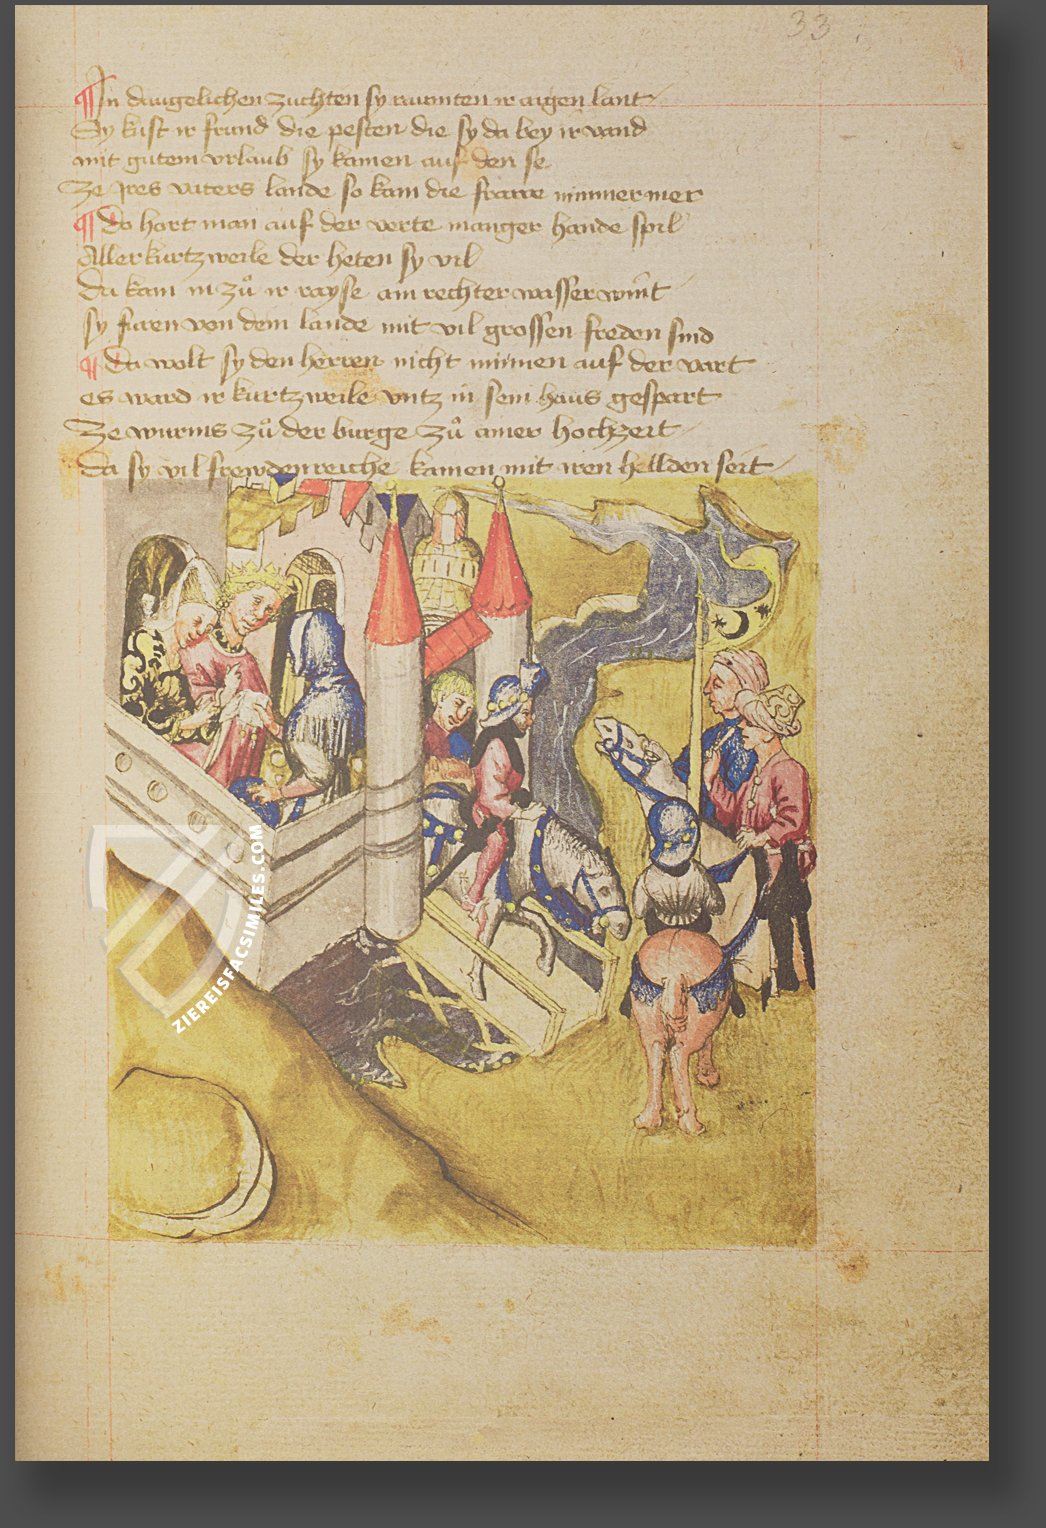 33
In daugelichen zuchten sy raumten ir aigen lant
Sy kust ir frund die pesten die sy da bey ir vand
mit gutem vrlaub sy kamen auf den se
Ze ires vaters lande so kam die frawe nimmer mer
Do hort man auf der verte manger hande spil
Aller kurtzweile der heten sy vil
Da kam in zů ir rayse ain rechter wasser wint
sy furen von dem lande mit vil grossen freden sind
Da wolt sy den herren nicht minnen auf der vart
es ward ir kurtzweile vntz in sein haus gespart
Ze wurms zů der burge zů ainer hochzeit
da sy vil frewdenreiche kamen mit iren hellden seit
ZIEREISFACSIMILES.COM